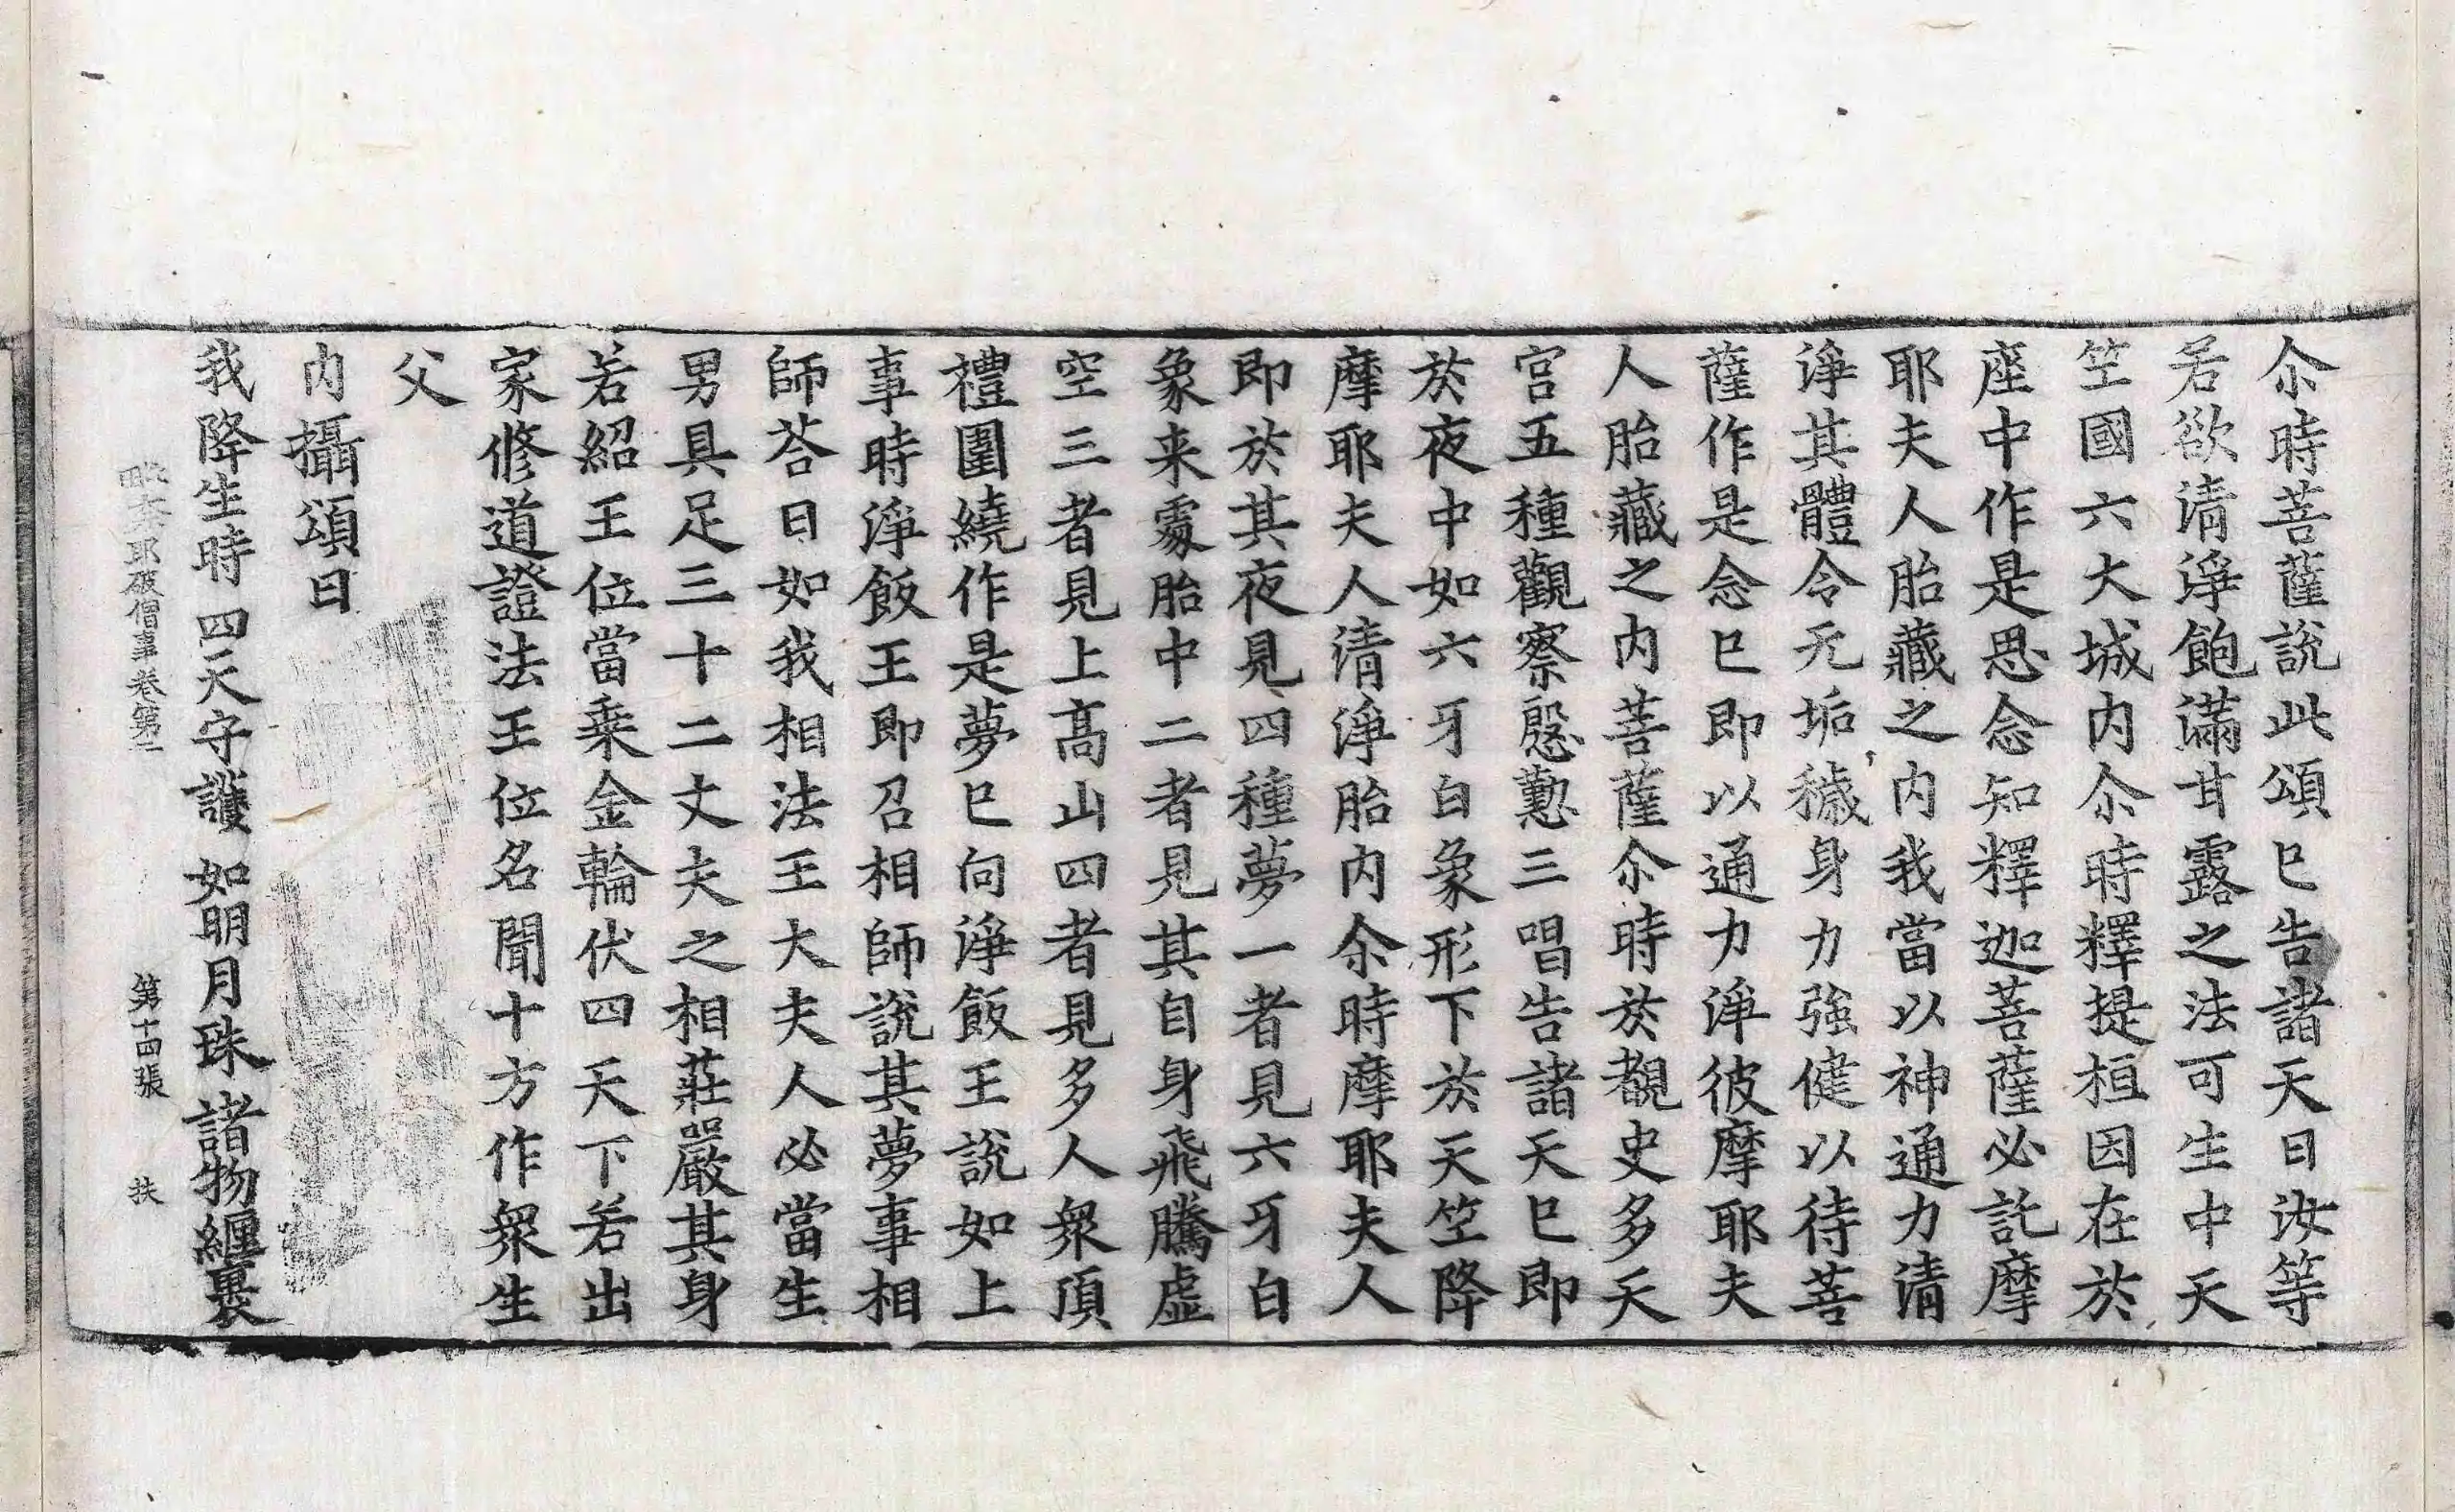 尒時菩薩說此頌已告諸天曰汝等
若欲清淨飽滿甘露之法可生中天
笁國六大城内尒時釋提桓因在於
座中作是思念知釋迦菩薩必託摩
耶夫人胎藏之内我當以神通力清
淨其體令无垢穢身力強健以待菩
薩作是念已即以通力淨彼摩耶夫
人胎藏之内菩薩尒時於覩史多天
宮五種觀察慇懃三唱告諸天已即
於夜中如六牙白象形下於天笁降
摩耶夫人清淨胎内尒時摩耶夫人
即於其夜見四種夢一者見六牙白
象来處胎中二者見其自身飛騰虛
空三者見上高山四者見多人衆頂
禮圍繞作是夢已向淨飯王說如上
事時淨飯王即召相師說其夢事相
師荅曰如我相法王大夫人必當生
男具足三十二丈夫之相莊嚴其身
若紹王位當乗金輪伏四天下若出
家修道證法王位名聞十方作衆生
父
内攝頌曰
我降生時 四天守護 如明月珠 諸物纏裹
毗奈耶破僧事卷第二 第十四張 扶